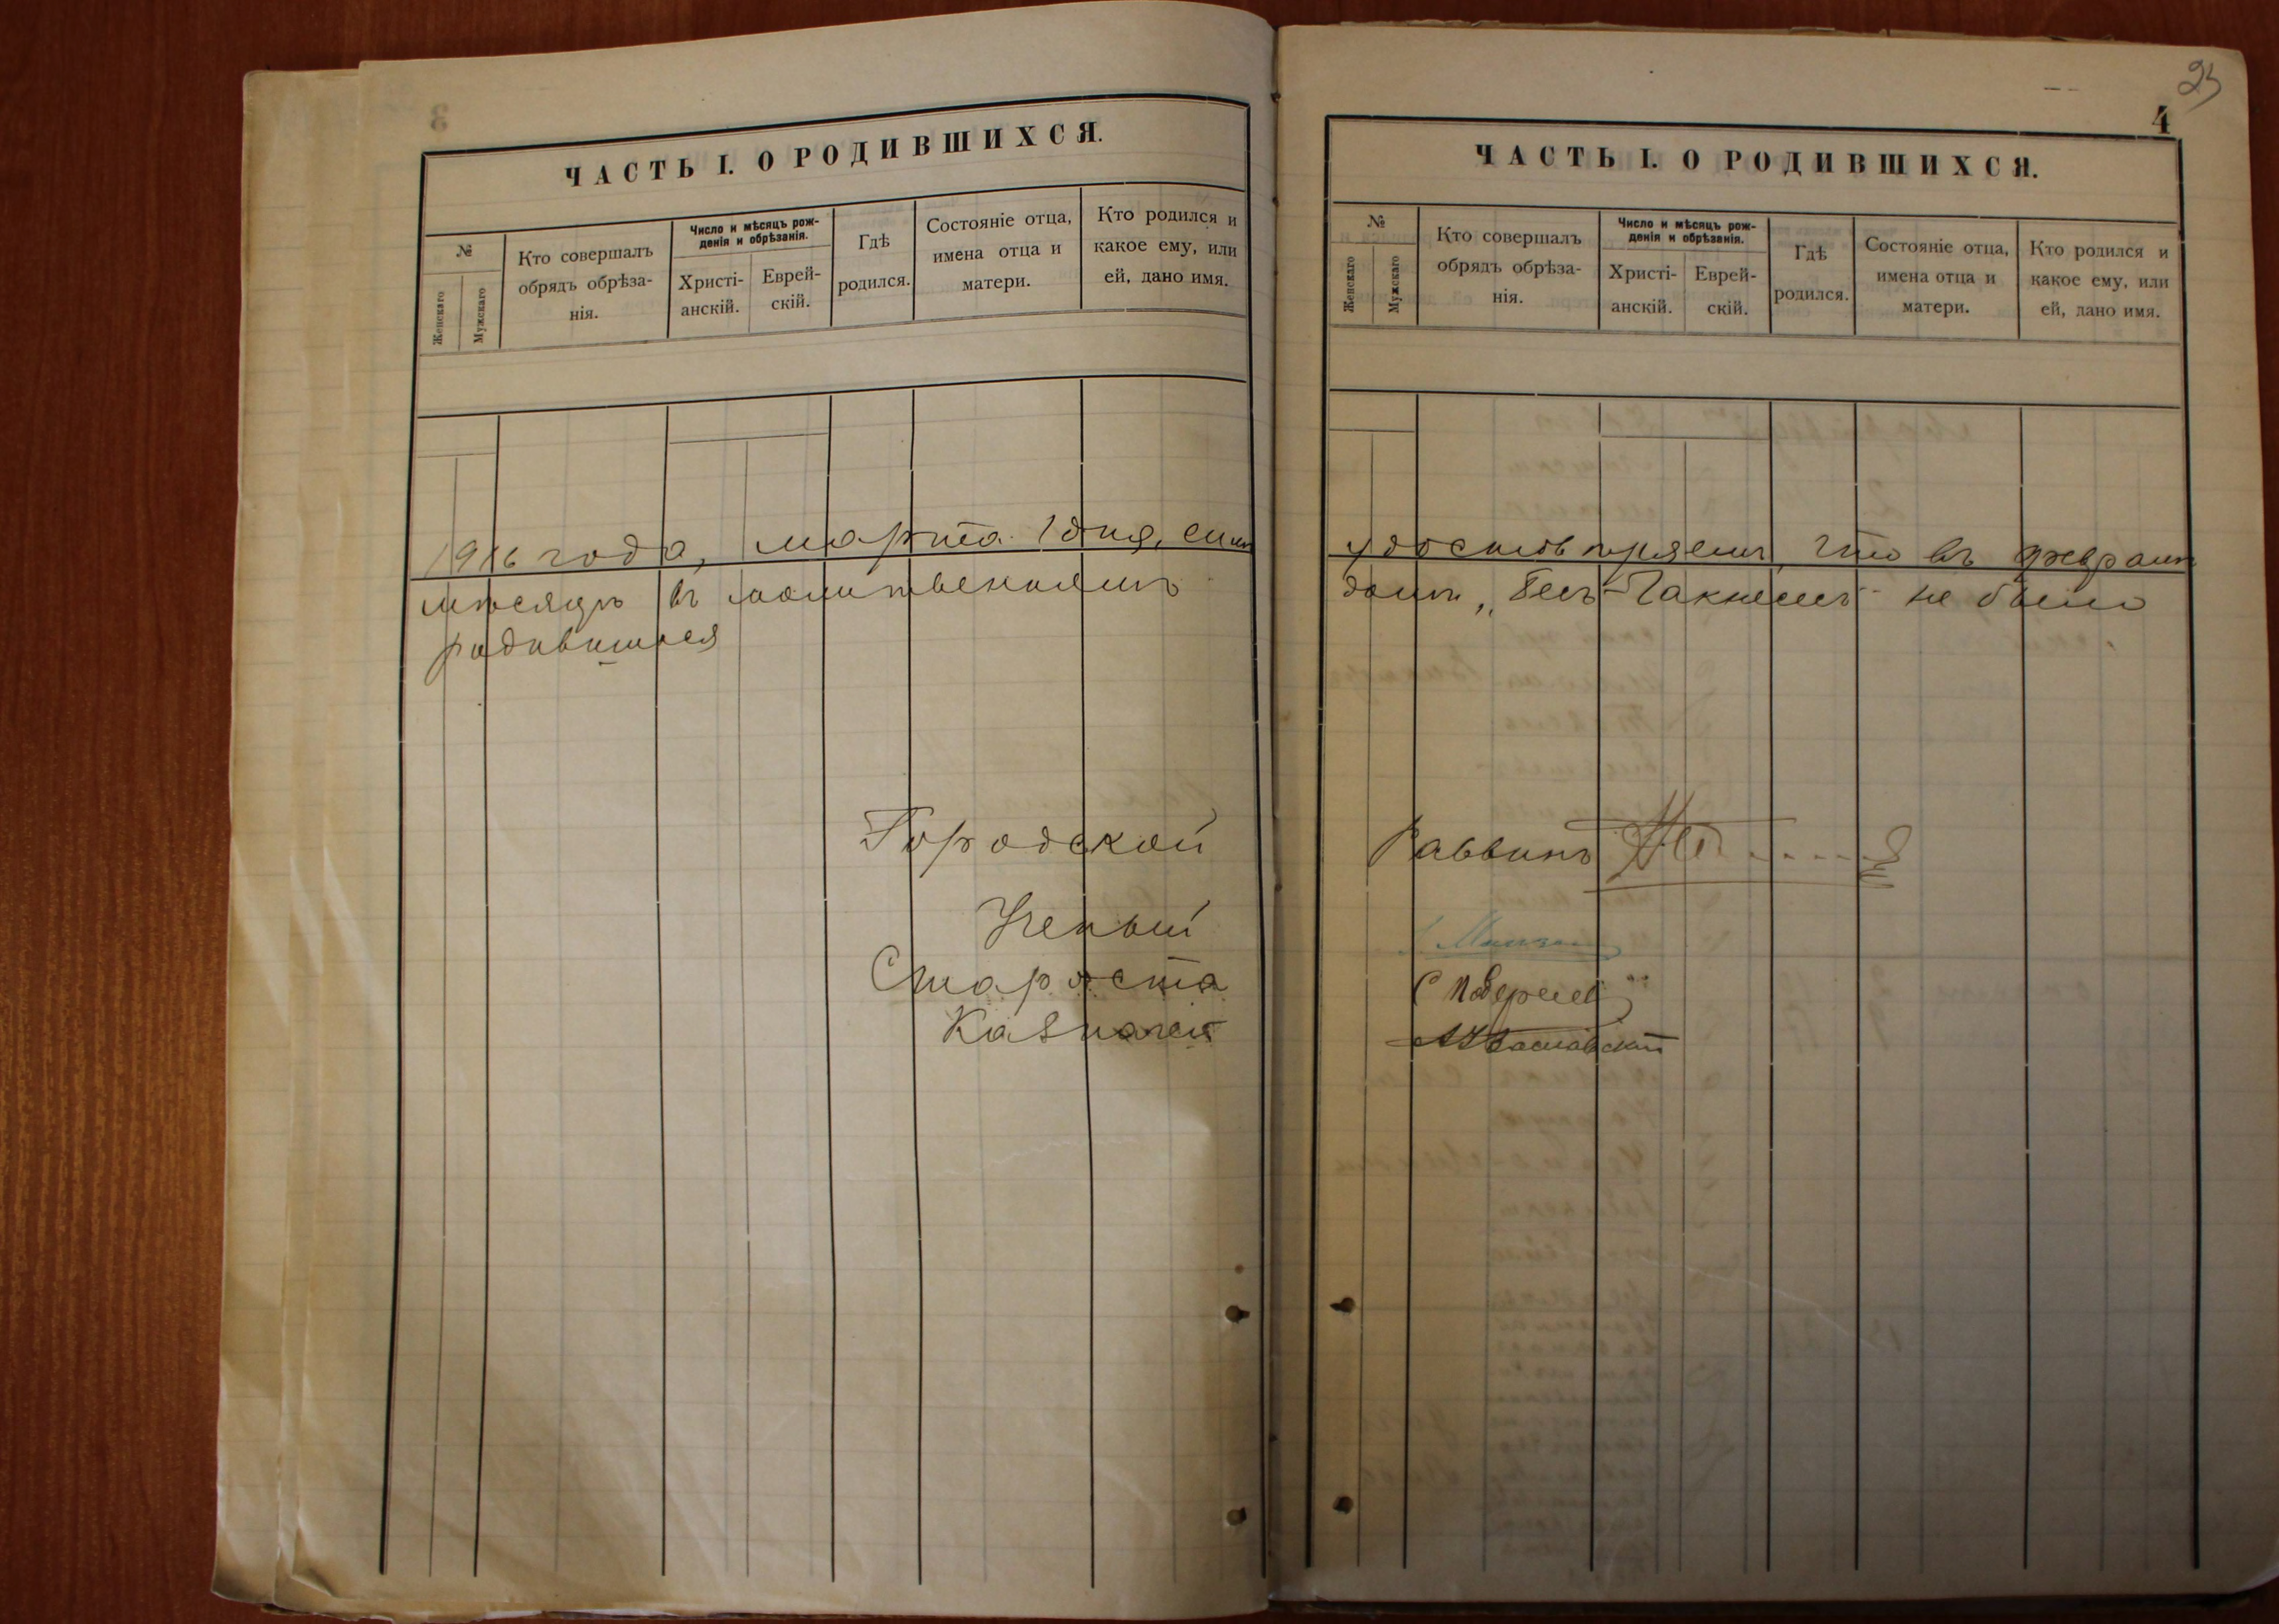 ЧАСТЬ I. О РОДИВШИХСЯ.
№
Женскаго
Мужскаго
Кто совершалъ
обрядъ обрѣза-
нія.
Число и мѣсяцъ рож-
денія и обрѣзанія.
Христі-
анскій.
Еврей-
скій.
Гдѣ
родился.
Состояніе отца,
имена отца и
матери.
Кто родился и
какое ему, или
ей, дано имя.
1916 года, марта 1 дня, симъ
мѣсяцѣ въ молитвенномъ
родившихся
Городской
Ученый
Староста
Казначей
25
4
ЧАСТЬ I. О РОДИВШИХСЯ.
№
Женскаго
Мужскаго
Кто совершалъ
обрядъ обрѣза-
нія.
Число и мѣсяцъ рож-
денія и обрѣзанія.
Христі-
анскій.
Еврей-
скій.
Гдѣ
родился.
Состояніе отца,
имена отца и
матери.
Кто родился и
какое ему, или
ей, дано имя.
удостовѣряемъ, что въ февралѣ
домѣ "Бесъ-Гакнесесъ" не было
Раввинъ